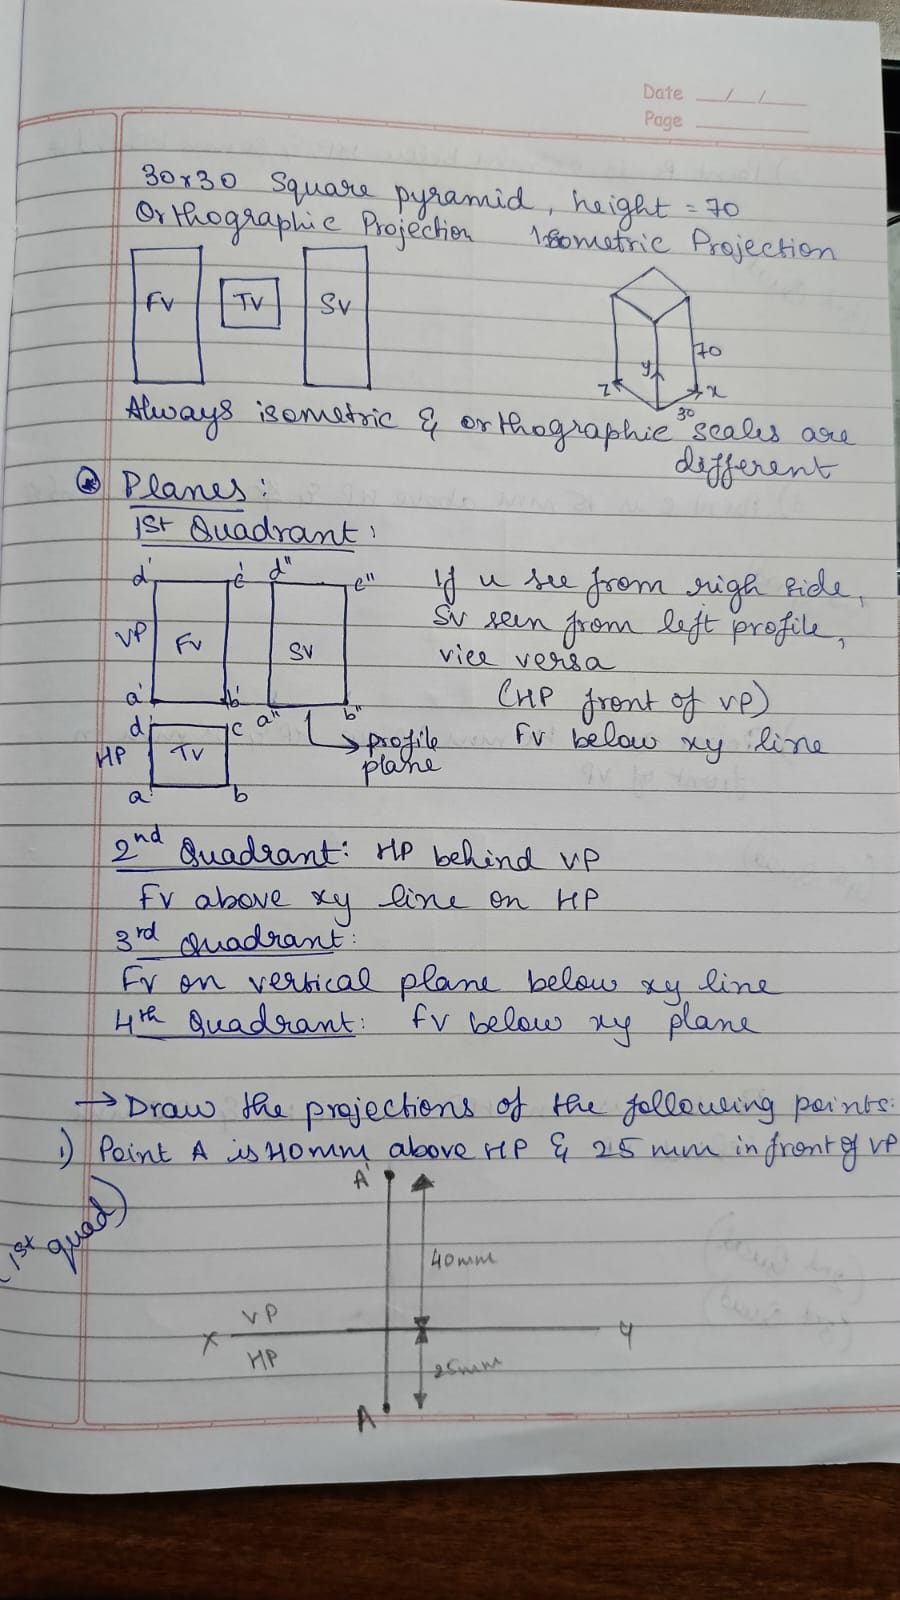 Date __/__/__
Page ______
30x30 Square pyramid, height = 70
Orthographic Projection Isometric Projection
FV TV SV
70
y
z x
30
Always isometric & orthographic scales are
different
Planes:
1st Quadrant:
d' c' d" c"
If u see from righ side,
VP FV SV
SV seen from left profile,
vice versa
a' b' a" b"
(HP front of VP)
d c
FV below xy line
HP TV
profile
plane
a b
2nd Quadrant: HP behind VP
FV above xy line on HP
3rd Quadrant:
FV on vertical plane below xy line
4th Quadrant: FV below xy plane
→ Draw the projections of the following points:
1) Point A is 40mm above HP & 25 mm in front of VP
(1st quad)
A'
40mm
VP
X y
HP
25mm
A